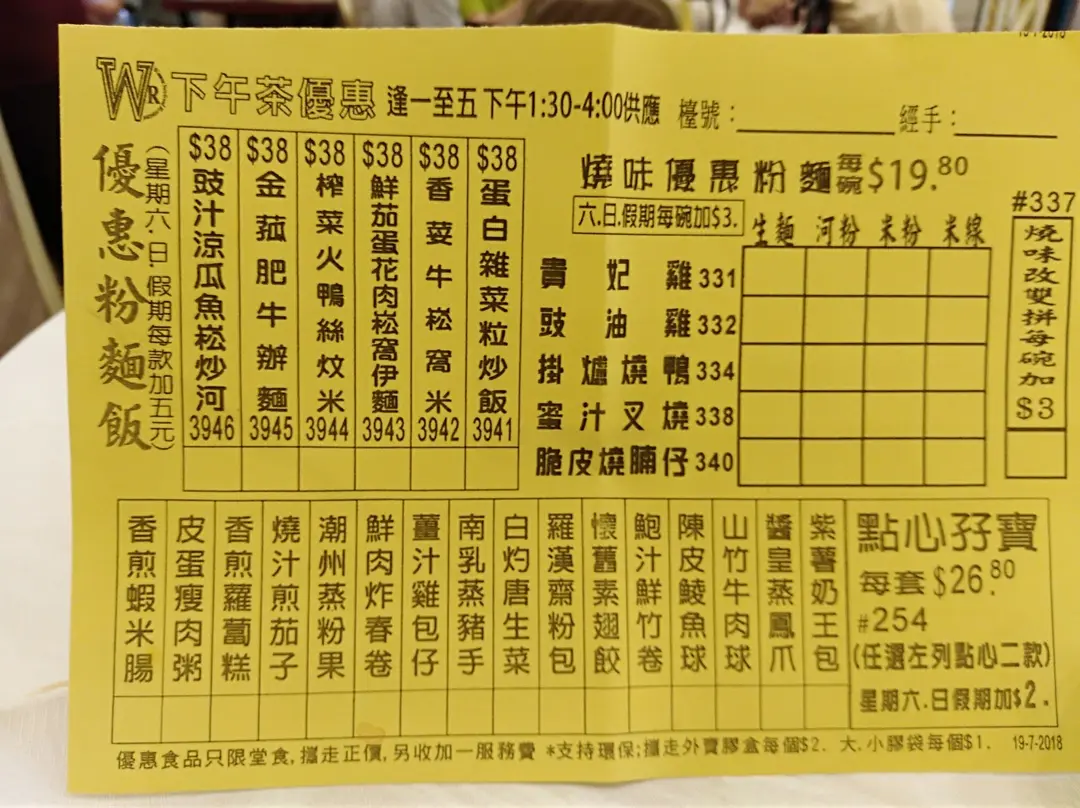 19-7-2018
WR 下午茶優惠 逢一至五下午1:30-4:00供應 檯號: 經手:
優惠粉麵飯
(星期六.日.假期每款加五元)
$38 豉汁涼瓜魚崧炒河 3946
$38 金菰肥牛辦麵 3945
$38 榨菜火鴨絲炆米 3944
$38 鮮茄蛋花肉崧窩伊麵 3943
$38 香荽牛崧窩米 3942
$38 蛋白雜菜粒炒飯 3941
燒味優惠粉麵 每碗 $19.80
六.日.假期每碗加$3.
生麵 河粉 米粉 米線
貴妃雞 331
豉油雞 332
掛爐燒鴨 334
蜜汁叉燒 338
脆皮燒腩仔 340
#337
燒味改雙拼每碗加$3
香煎蝦米腸
皮蛋瘦肉粥
香煎蘿蔔糕
燒汁煎茄子
潮州蒸粉果
鮮肉炸春卷
薑汁雞包仔
南乳蒸豬手
白灼唐生菜
羅漢齋粉包
懷舊素翅餃
鮑汁鮮竹卷
陳皮鯪魚球
山竹牛肉球
醬皇蒸鳳爪
紫薯奶王包
點心孖寶
每套$26.80
#254
(任選左列點心二款)
星期六.日假期加$2.
優惠食品只限堂食,攜走正價,另收加一服務費 *支持環保;攜走外賣膠盒每個$2. 大.小膠袋每個$1. 19-7-2018